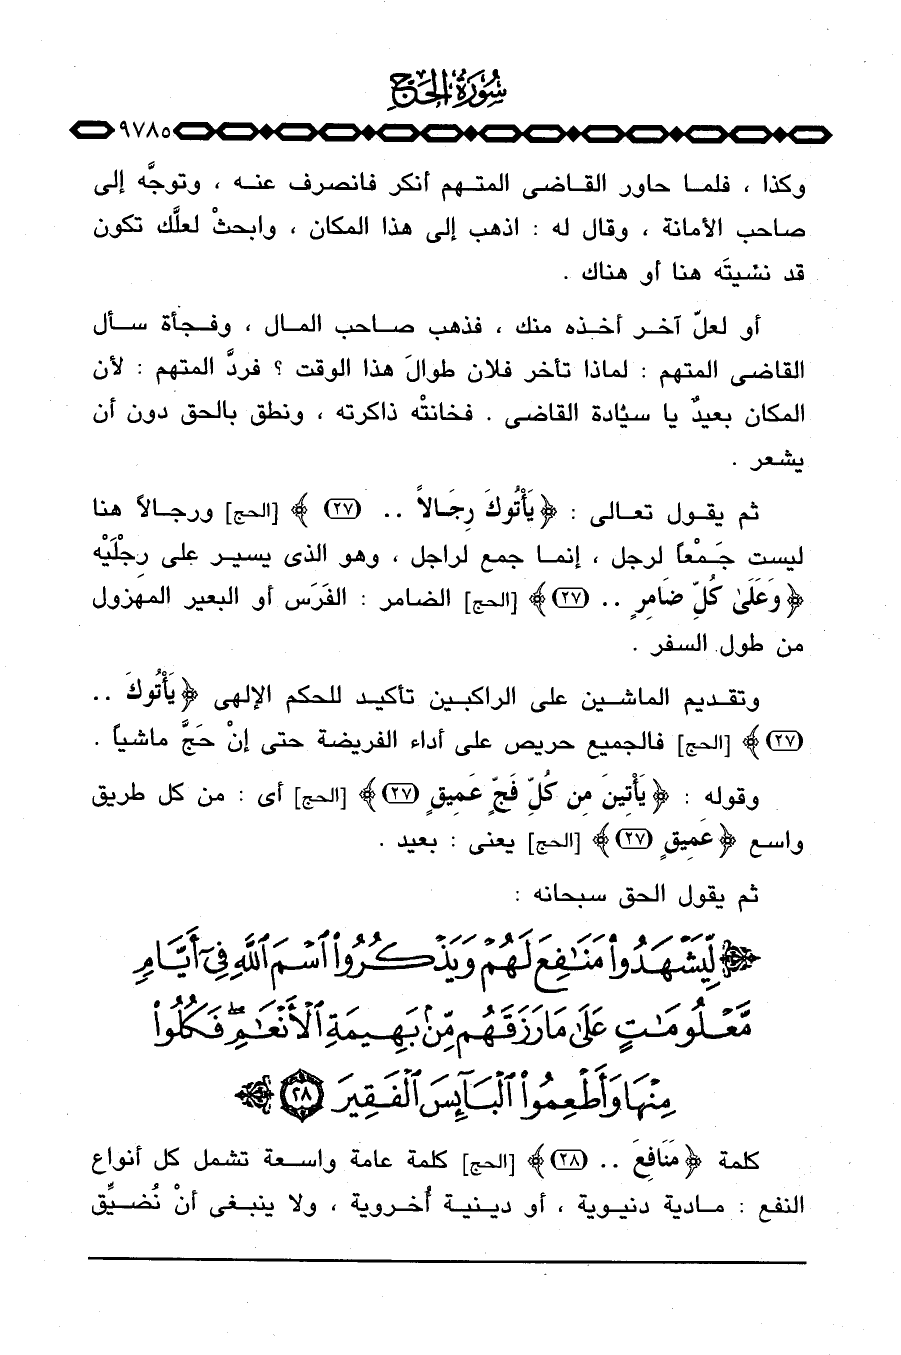 سُورَةُ الحَجّ
٩٧٨٥
وكذا ، فلمـا حاور القـاضى المتـهم أنكر فانصرف عنـه ، وتوجَّه إلى
صاحب الأمانة ، وقال له : اذهب إلى هذا المكان ، وابحثْ لعلَّك تكون
قد نسْيتَه هنا أو هناك .
أو لعلّ آخر أخذه منك ، فذهب صاحب المال ، وفـجأة سـأل
القاضى المتهم : لماذا تأخر فلان طوالَ هذا الوقت ؟ فردَّ المتهم : لأن
المكان بعيدٌ يا سيادة القاضى . فخانتْه ذاكرته ، ونطق بالحق دون أن
يشعر .
ثم يقول تعالى : ﴿يَأْتُوكَ رِجَالاً .. (٢٧) ﴾ [الحج] ورجالاً هنا
ليست جَمْعاً لرجل ، إنمـا جمع لراجل ، وهو الذى يسير على رِجلْيْه
﴿وَعَلَىٰ كُلِّ ضَامِرٍ .. (٢٧)﴾ [الحج] الضامر : الفَرَس أو البعير المهزول
من طول السفر .
وتقديم الماشين على الراكبين تأكيد للحكم الإلهى ﴿يَأْتُوكَ ..
(٢٧)﴾ [الحج] فالجميع حريص على أداء الفريضة حتى إنْ حَجَّ ماشياً .
وقوله : ﴿يَأْتِينَ مِن كُلِّ فَجٍّ عَمِيقٍ (٢٧)﴾ [الحج] أى : من كل طريق
واسع ﴿عَمِيقٍ (٢٧)﴾ [الحج] يعنى : بعيد .
ثم يقول الحق سبحانه :
﴿لِّيَشْهَدُوا۟ مَنَـٰفِعَ لَهُمْ وَيَذْكُرُوا۟ ٱسْمَ ٱللَّهِ فِىٓ أَيَّامٍ
مَّعْلُومَـٰتٍ عَلَىٰ مَا رَزَقَهُم مِّنۢ بَهِيمَةِ ٱلْأَنْعَـٰمِ ۖ فَكُلُوا۟
مِنْهَا وَأَطْعِمُوا۟ ٱلْبَآئِسَ ٱلْفَقِيرَ ٢٨﴾
كلمة ﴿مَنَافِعَ .. (٢٨)﴾ [الحج] كلمة عامة واسعة تشمل كل أنواع
النفع : مادية دنيوية ، أو دينية أُخروية ، ولا ينبغى أنْ نُضيِّق